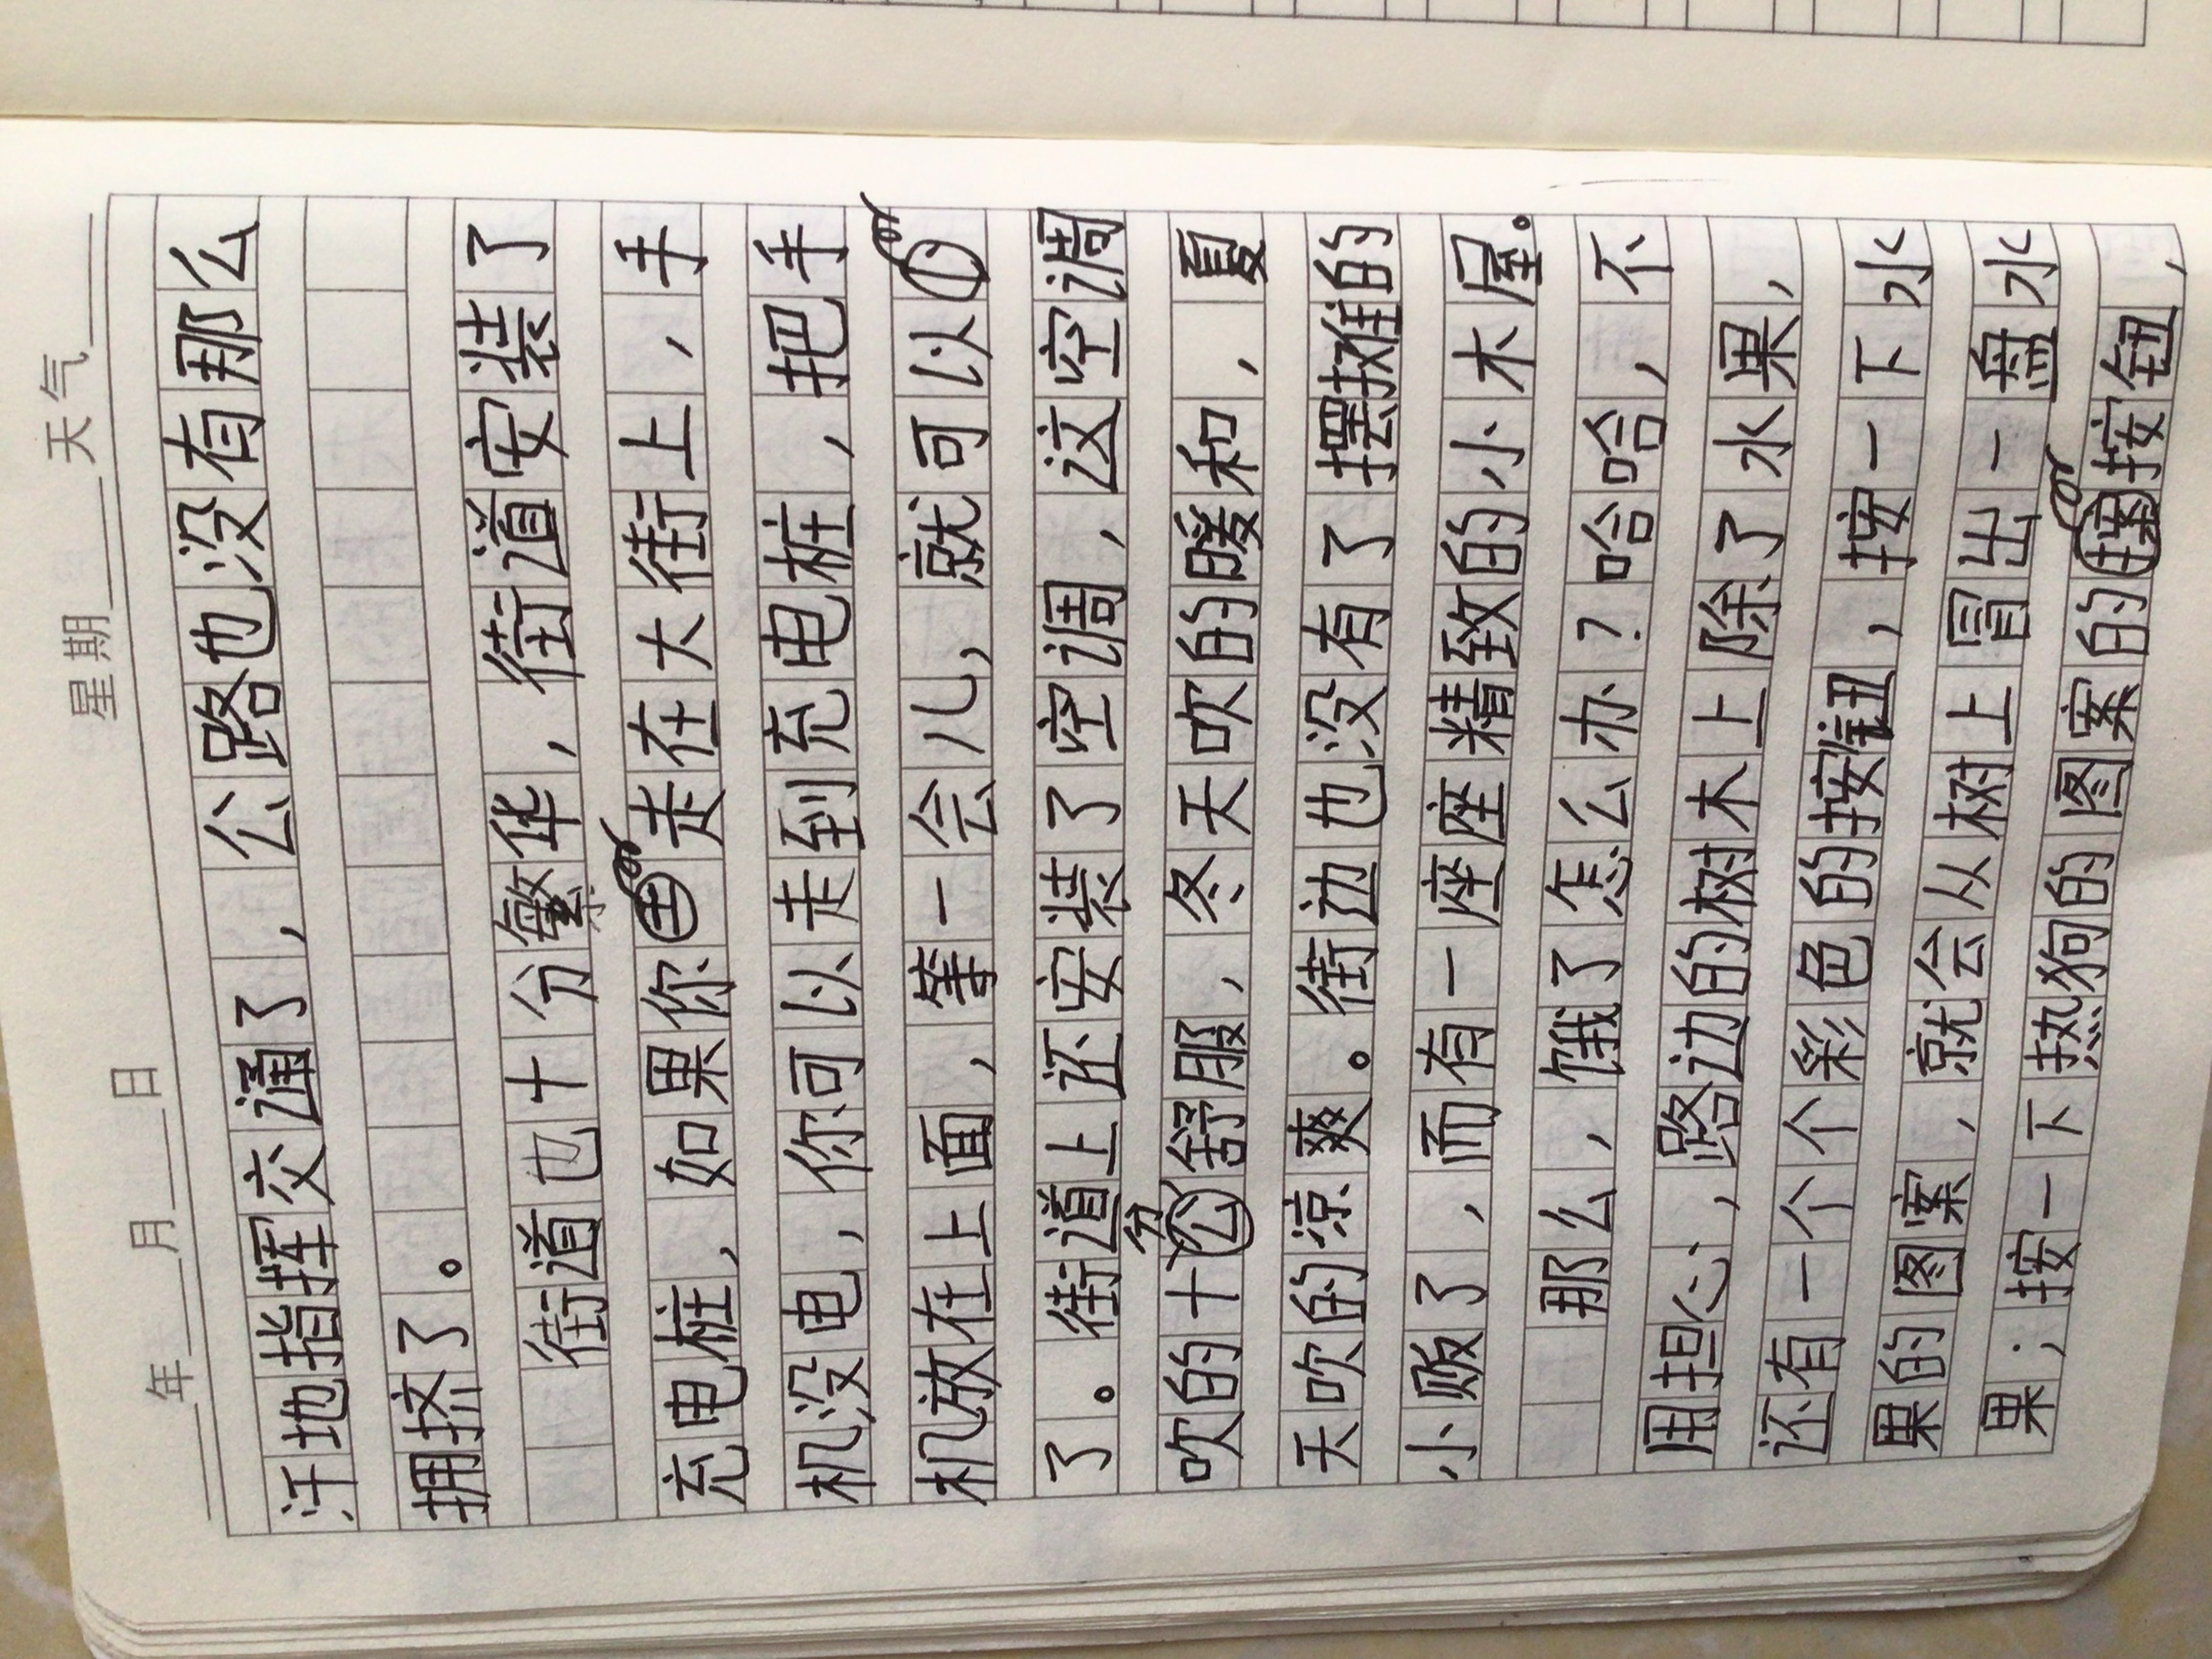 年 月 日 星期 天气
汗地指挥交通了，公路也没有那么
拥挤了。
街道也十分繁华，街道安装了
充电桩，如果你走在大街上，手
机没电，你可以走到充电桩，把手
机放在上面，等一会儿，就可以
了。街道上还安装了空调，这空调
吹的十分舒服，冬天吹的暖和，夏
天吹的凉爽。街边也没有了摆摊的
小贩了，而有一座座精致的小木屋。
那么，饿了怎么办？哈哈，不
用担心，路边的树木上除了水果，
还有一个个彩色的按钮，按一下水
果的图案，就会从树上冒出一盘水
果；按一下热狗的图案的按钮，